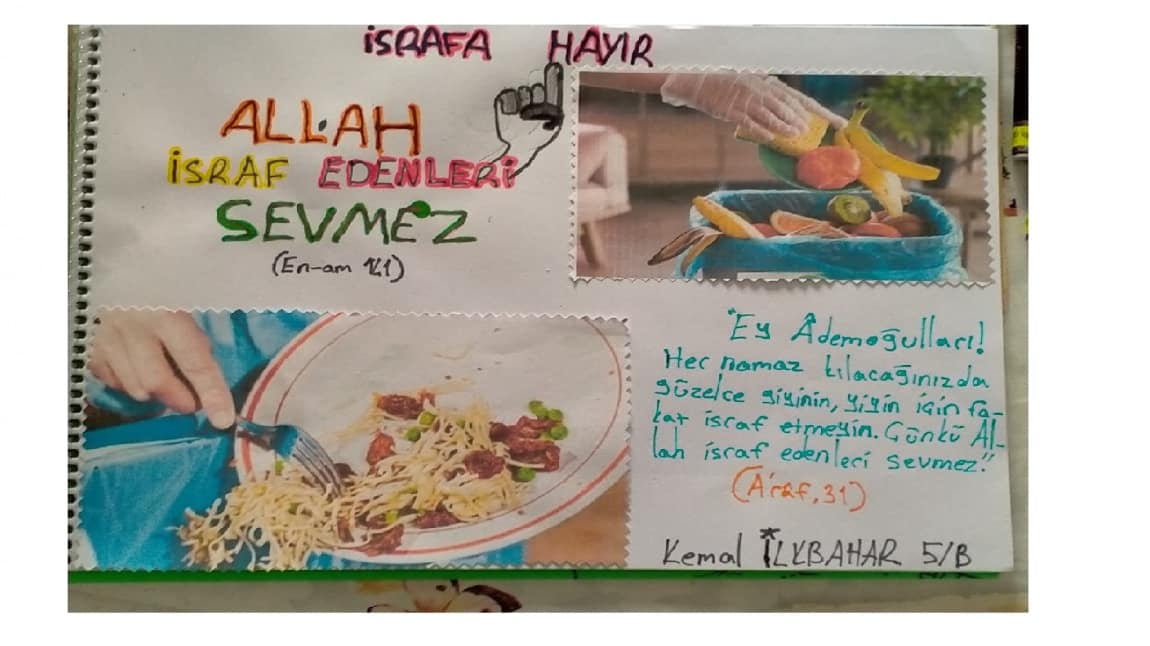 İSRAFA HAYIR
ALLAH
İSRAF EDENLERİ
SEVMEZ
(En-am 141)
"Ey Âdemoğulları!
Her namaz kılacağınızda
güzelce giyinin, yiyin için fa-
kat israf etmeyin. Çünkü Al-
lah israf edenleri sevmez."
(A'raf, 31)
Kemal İLKBAHAR 5/B